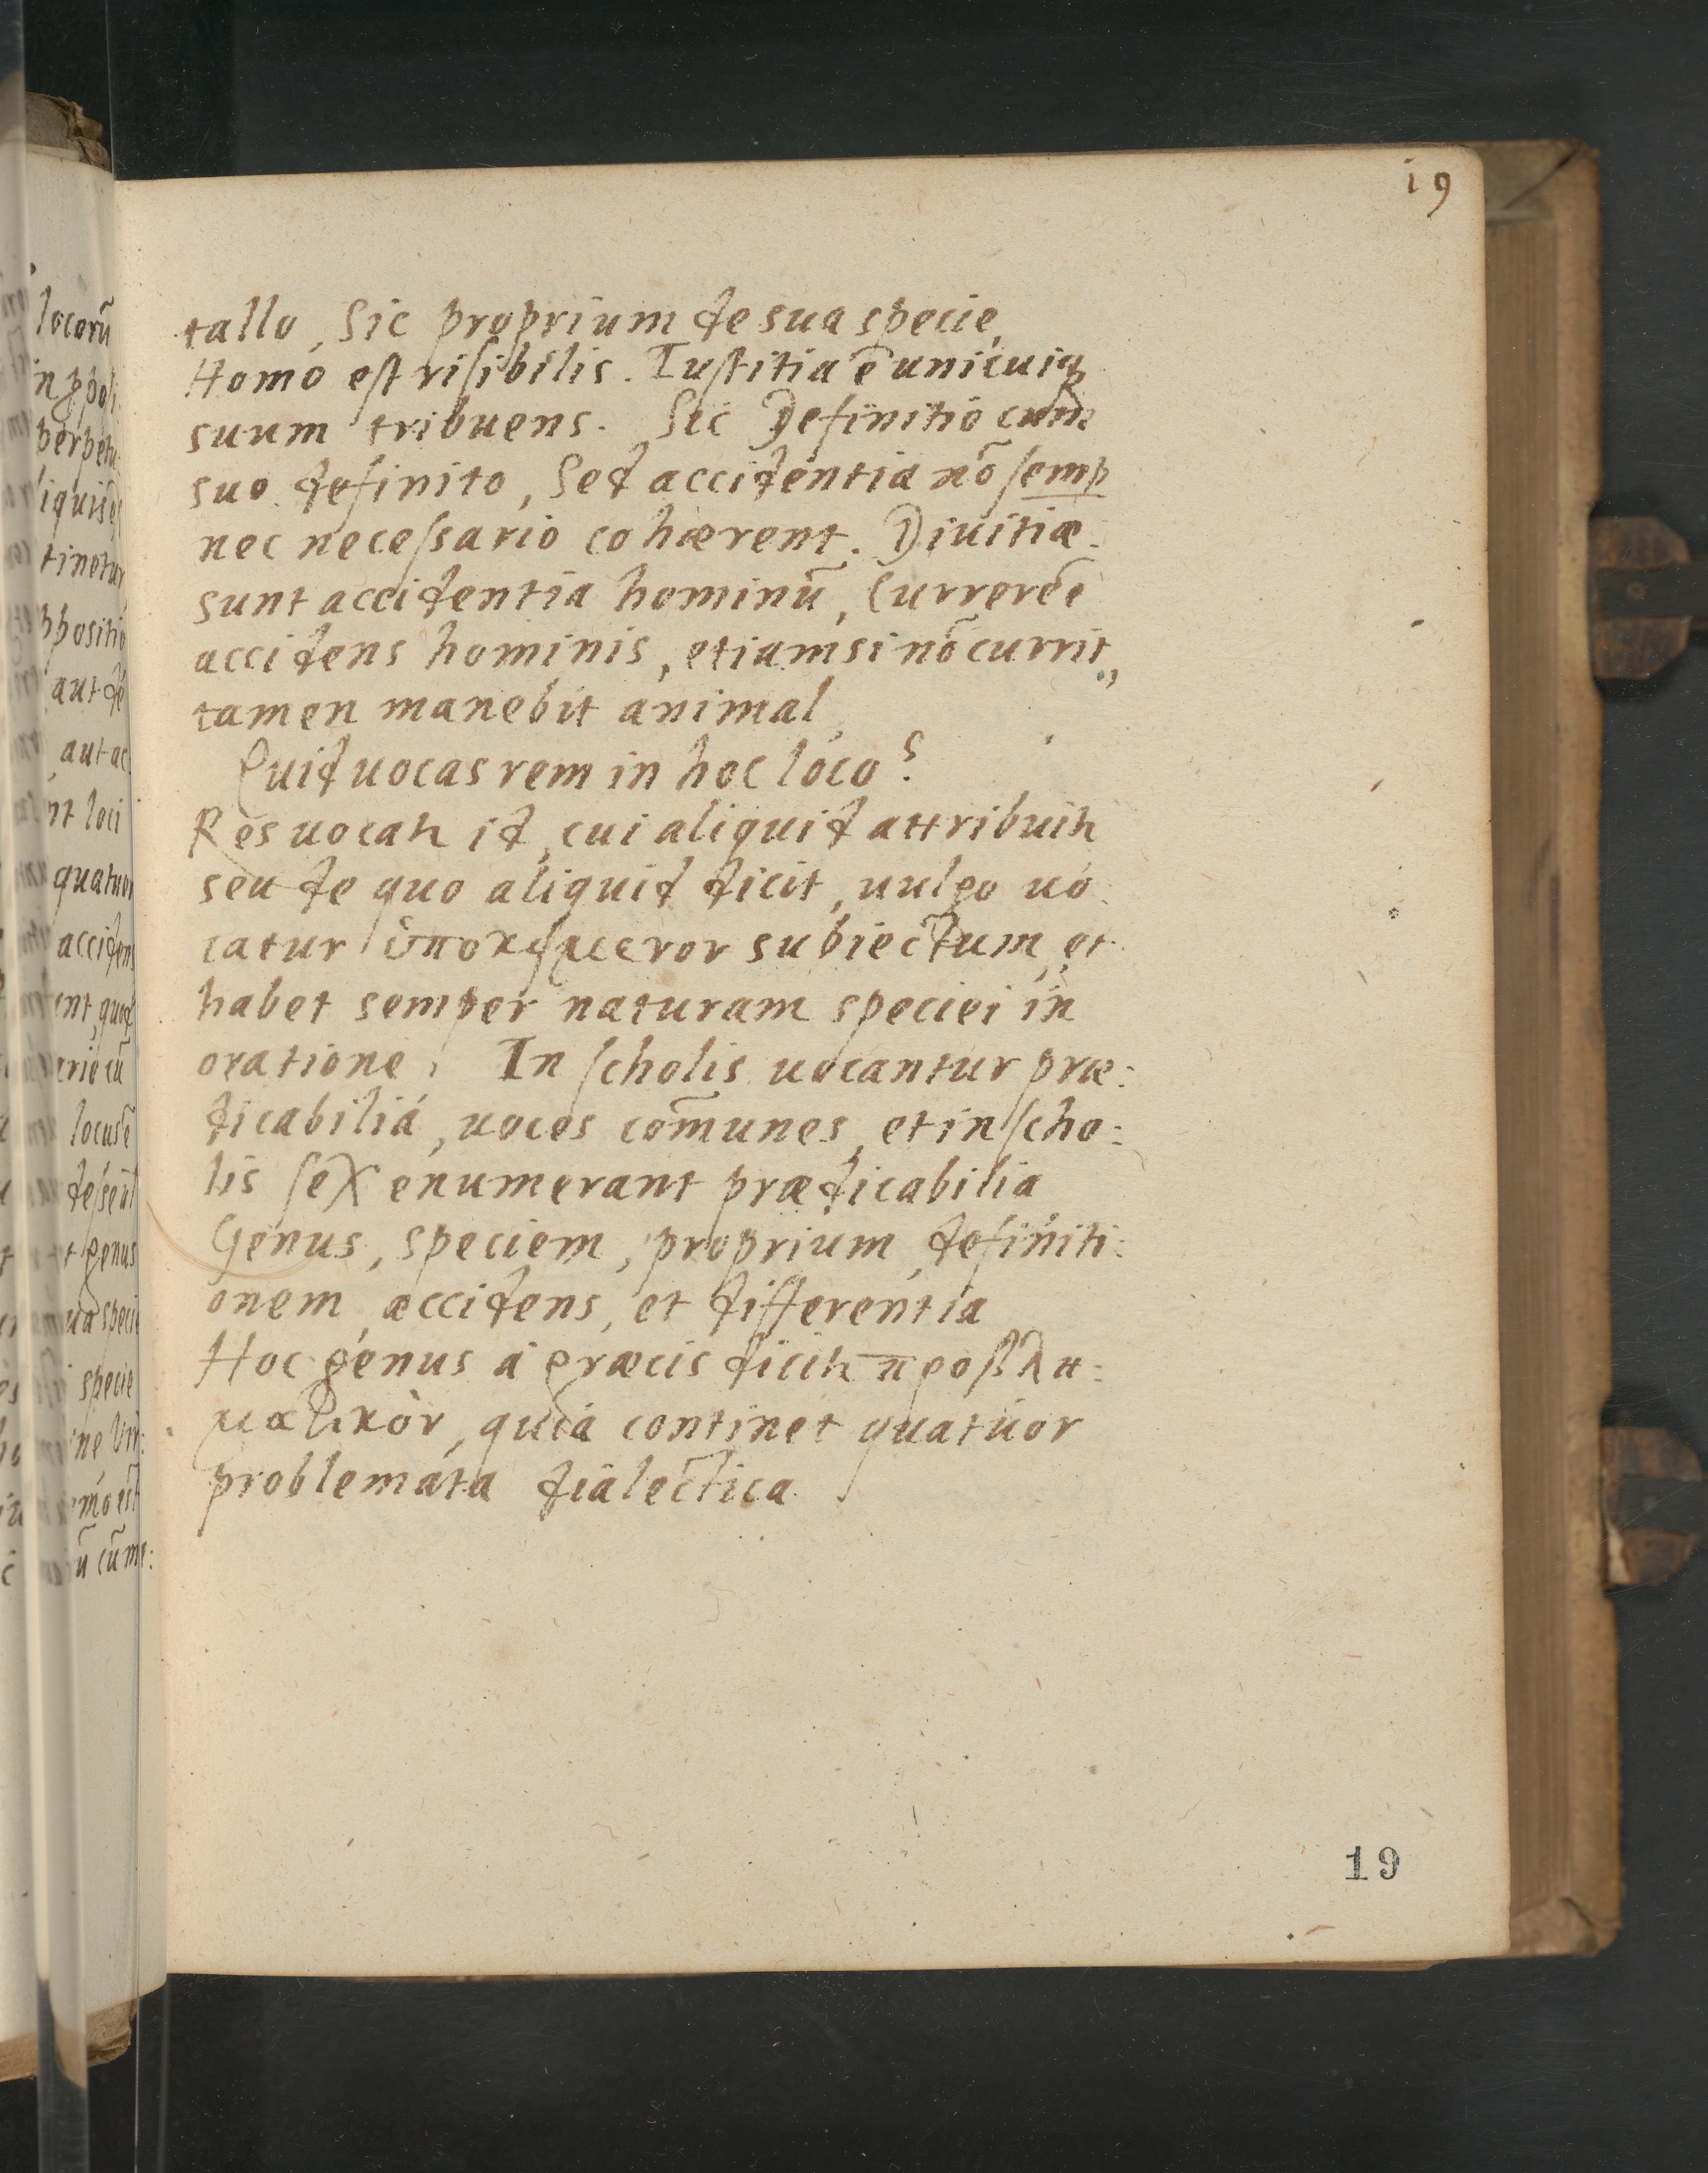 19
tallo, Sic proprium de sua specie,
Homo est risibilis. Iustitia ē unicuiqꝫ
suum tribuens. Sic Definitio cum
suo definito, Sed accidentia nō semꝑ
nec necessario cohærent. Diuitiæ
sunt accidentia hominū, Currere ē
accidens hominis, etiamsi nō currit,
tamen manebit animal,
Quid uocas rem in hoc loco?
Res uocatr id, cui aliquid attribuitr
seu de quo aliquid dicit, uulgo uo
catur ὑποκείμενον subiectum, et
habet semper naturam speciei in
oratione. In scholis uocantur præ:
dicabilia, uoces com̄unes, et in scho:
lis sex enumerant prædicabilia
Genus, speciem, proprium, definiti:
onem accidens, et differentia
Hoc genus a græcis dicitr προβλη:
ματικὸν, quia continet quatuor
problemata dialectica.
19
locorū
perpetu
tinetur
aut de
aut ac
nt loci
quatuor
accidens
ent, quod
ario cū
locus ē
genus
specie
ū cū me: